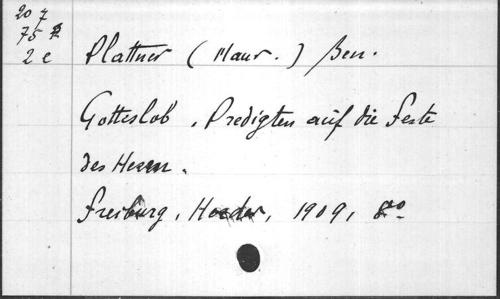 20 7
75
2 e
Plattner (Maur.) Ben.
Gotteslob, Predigten auf die Feste
des Herrn.
Freiburg, Herder, 1909, 8vo